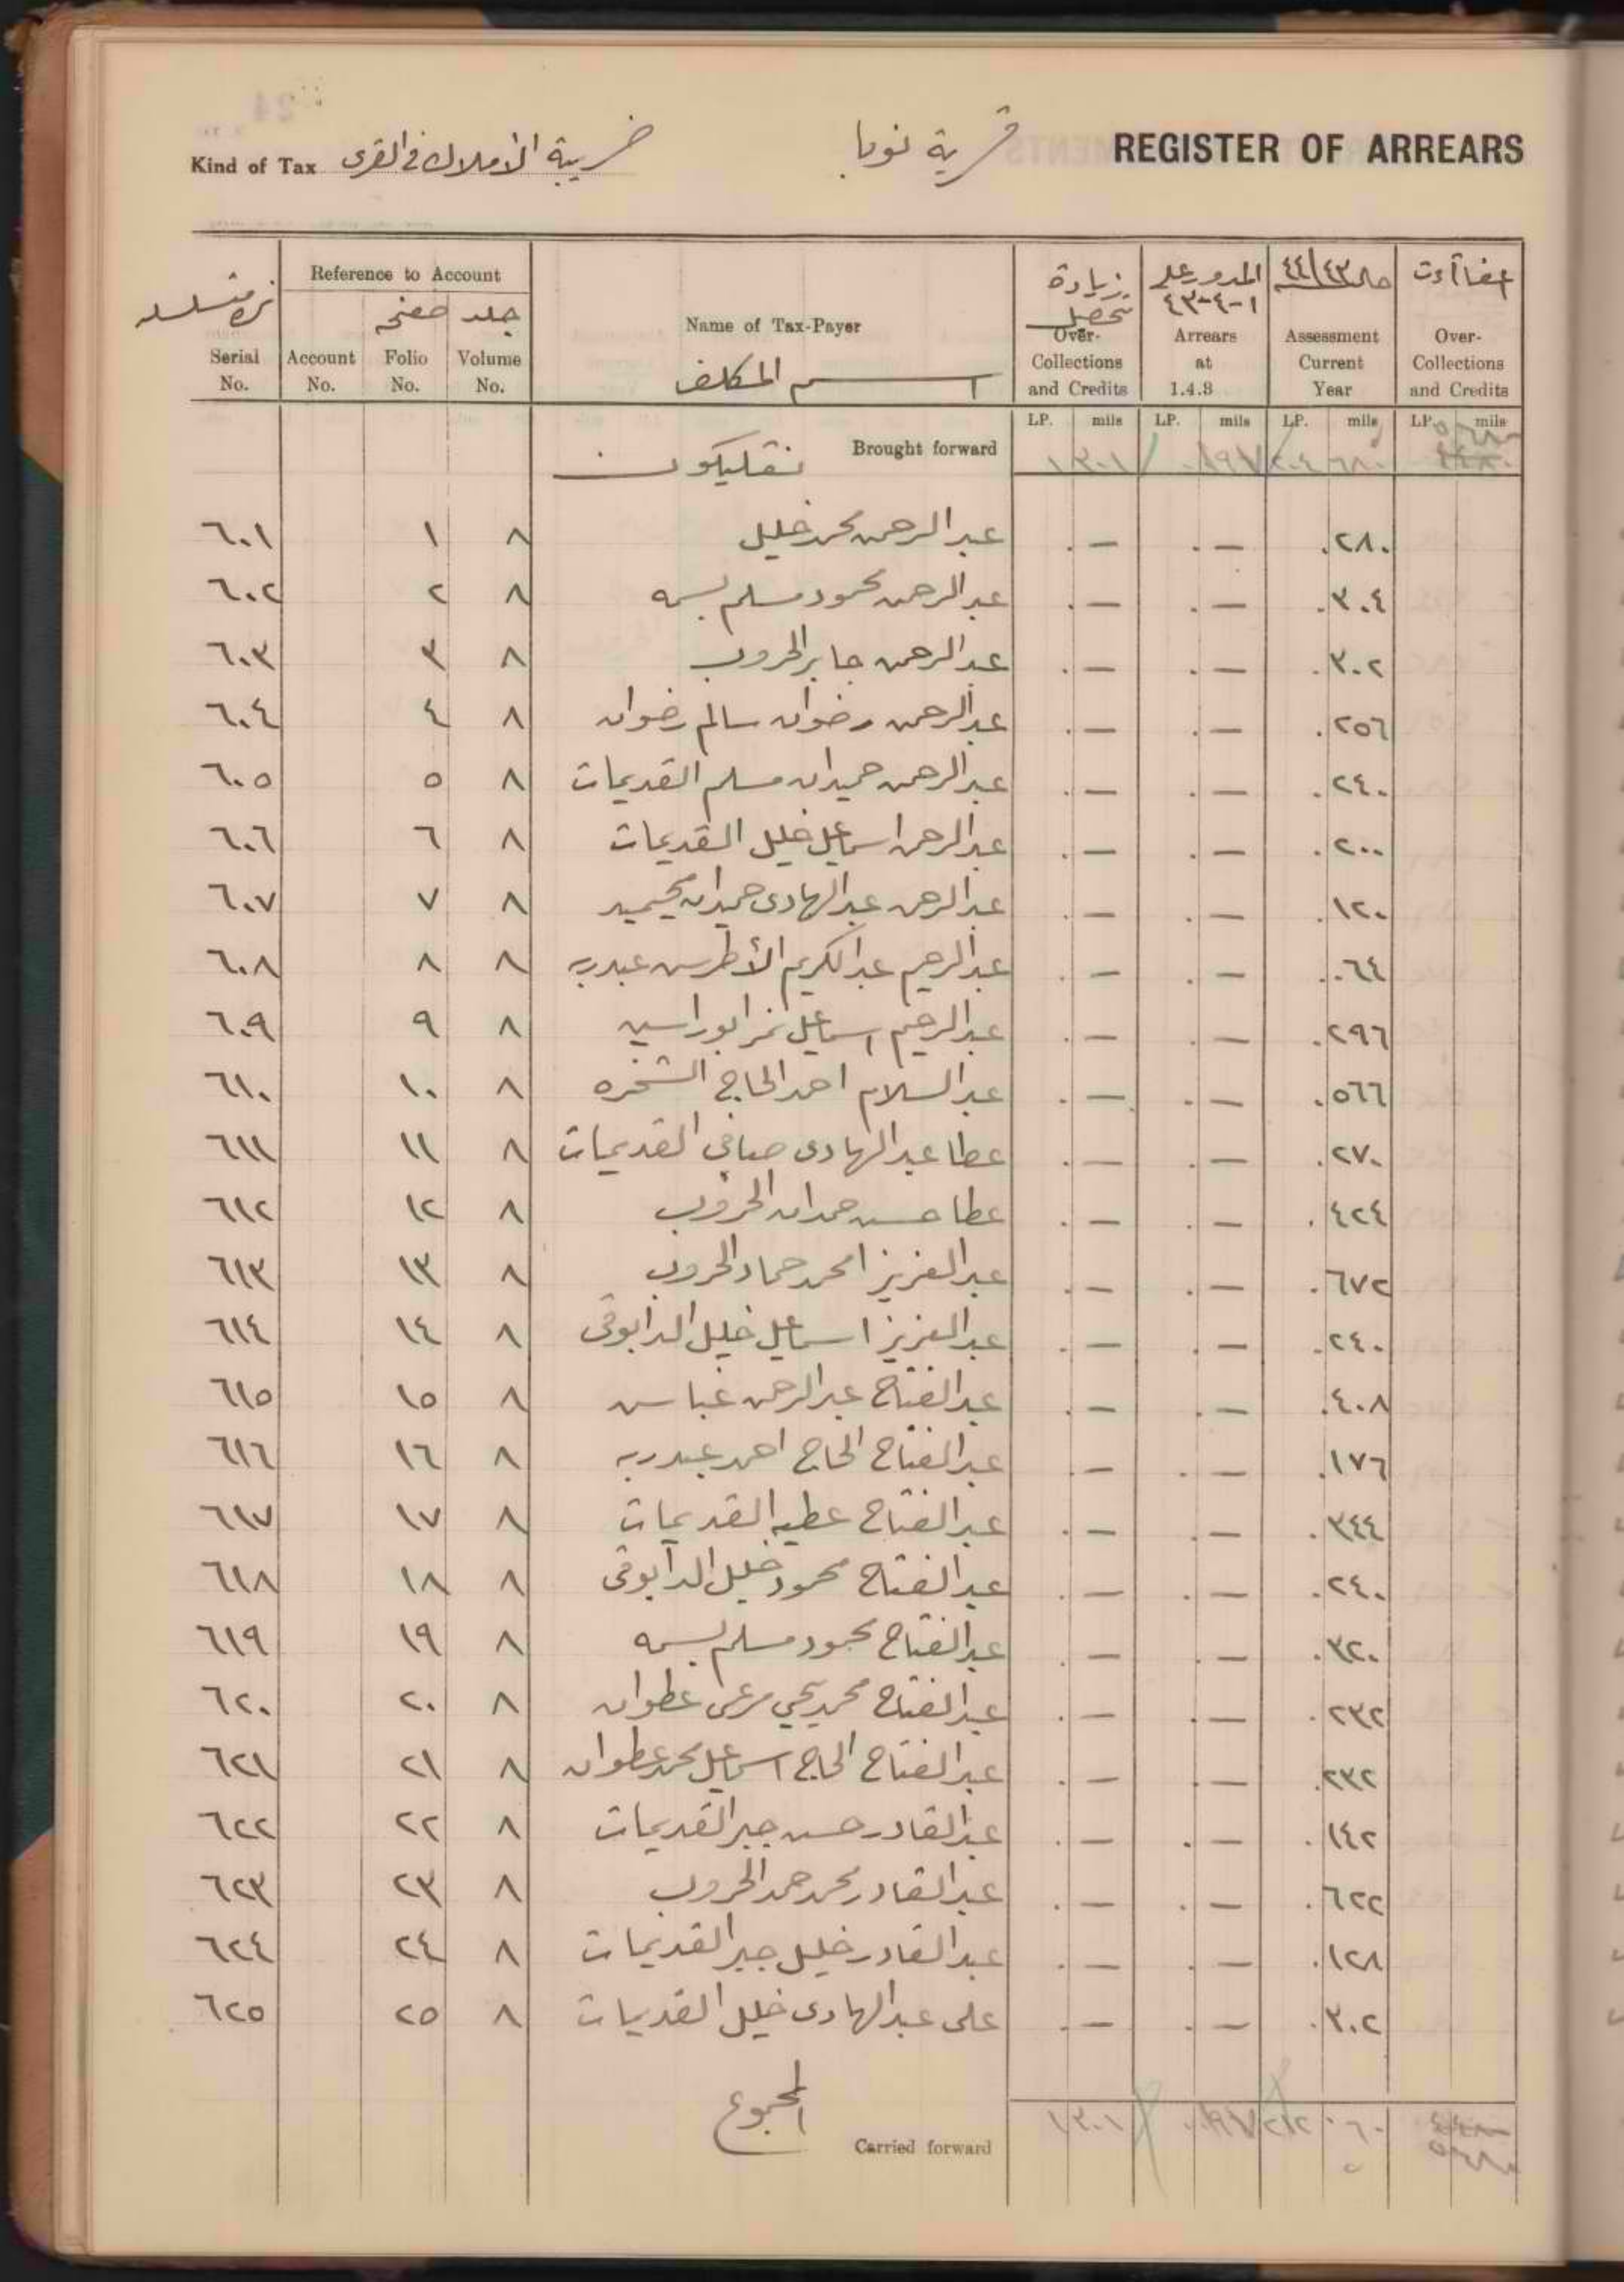 Kind of Tax ضريبة الأملاك في القرى قرية نوبا REGISTER OF ARREARS
نمرة متسلسلة Serial No. | Reference to Account | Account No. | صفحة Folio No. | جلد Volume No. | Name of Tax-Payer اسم المكلف | زيادة تحصيل Over-Collections and Credits | المدور على ١-٤-٤٣ Arrears at 1.4.3 | مال ٤٤/٤٣ Assessment Current Year | اعفاآت Over-Collections and Credits
LP. mils LP. mils LP. mils LP. mils
نقليكون Brought forward ١٣٠١ ٢٠٤ ٦٨٠
٦٠١ ١ ٨ عبدالرحمن محمد خليل . — . — .٢٨٠
٦٠٢ ٢ ٨ عبدالرحمن محمود مسلم بسمه . — . — .٣٠٤
٦٠٣ ٣ ٨ عبدالرحمن جابر الحروب . — . — .٣٠٢
٦٠٤ ٤ ٨ عبدالرحمن رضوان سالم رضوان . — . — .٢٥٦
٦٠٥ ٥ ٨ عبدالرحمن حميدان مسلم القديمات . — . — .٢٤٠
٦٠٦ ٦ ٨ عبدالرحمن اسماعيل خليل القديمات . — . — .٢٠٠
٦٠٧ ٧ ٨ عبدالرحمن عبدالهادى حميدان . — . — .١٢٠
٦٠٨ ٨ ٨ عبدالرحيم عبدالكريم الأطرس عبدربه . — . — .٠٦٤
٦٠٩ ٩ ٨ عبدالرحيم اسماعيل نمر ابوراسين . — . — .٢٩٦
٦١٠ ١٠ ٨ عبدالسلام احمد الحاج الشخره . — . — .٥٦٦
٦١١ ١١ ٨ عطا عبدالهادى صافي القديمات . — . — .٢٧٠
٦١٢ ١٢ ٨ عطا حسن حمدان الحروب . — . — .٤٢٤
٦١٣ ١٣ ٨ عبدالعزيز امحمد حماد الحروب . — . — .٦٧٢
٦١٤ ١٤ ٨ عبدالعزيز اسماعيل خليل الدابوقى . — . — .٢٤٠
٦١٥ ١٥ ٨ عبدالفتاح عبدالرحمن عباس . — . — .٤٠٨
٦١٦ ١٦ ٨ عبدالفتاح الحاج احمد عبدربه . — . — .١٧٦
٦١٧ ١٧ ٨ عبدالفتاح عطيه القديمات . — . — .٣٤٤
٦١٨ ١٨ ٨ عبدالفتاح محمود خليل الدابوقى . — . — .٢٤٠
٦١٩ ١٩ ٨ عبدالفتاح محمود مسلم بسمه . — . — .٣٢٠
٦٢٠ ٢٠ ٨ عبدالفتاح محمد يحيى مرعى عطوان . — . — .٢٣٢
٦٢١ ٢١ ٨ عبدالفتاح الحاج اسماعيل محمد عطوان . — . — .٢٣٢
٦٢٢ ٢٢ ٨ عبدالقادر حسن جبر القديمات . — . — .١٤٢
٦٢٣ ٢٣ ٨ عبدالقادر محمد حمد الحروب . — . — .٦٢٢
٦٢٤ ٢٤ ٨ عبدالقادر خليل جبر القديمات . — . — .١٢٨
٦٢٥ ٢٥ ٨ على عبدالهادى خليل القديمات . — . — .٣٠٢
المجموع Carried forward ١٣٠١ ٢١٢ ٠٦٠